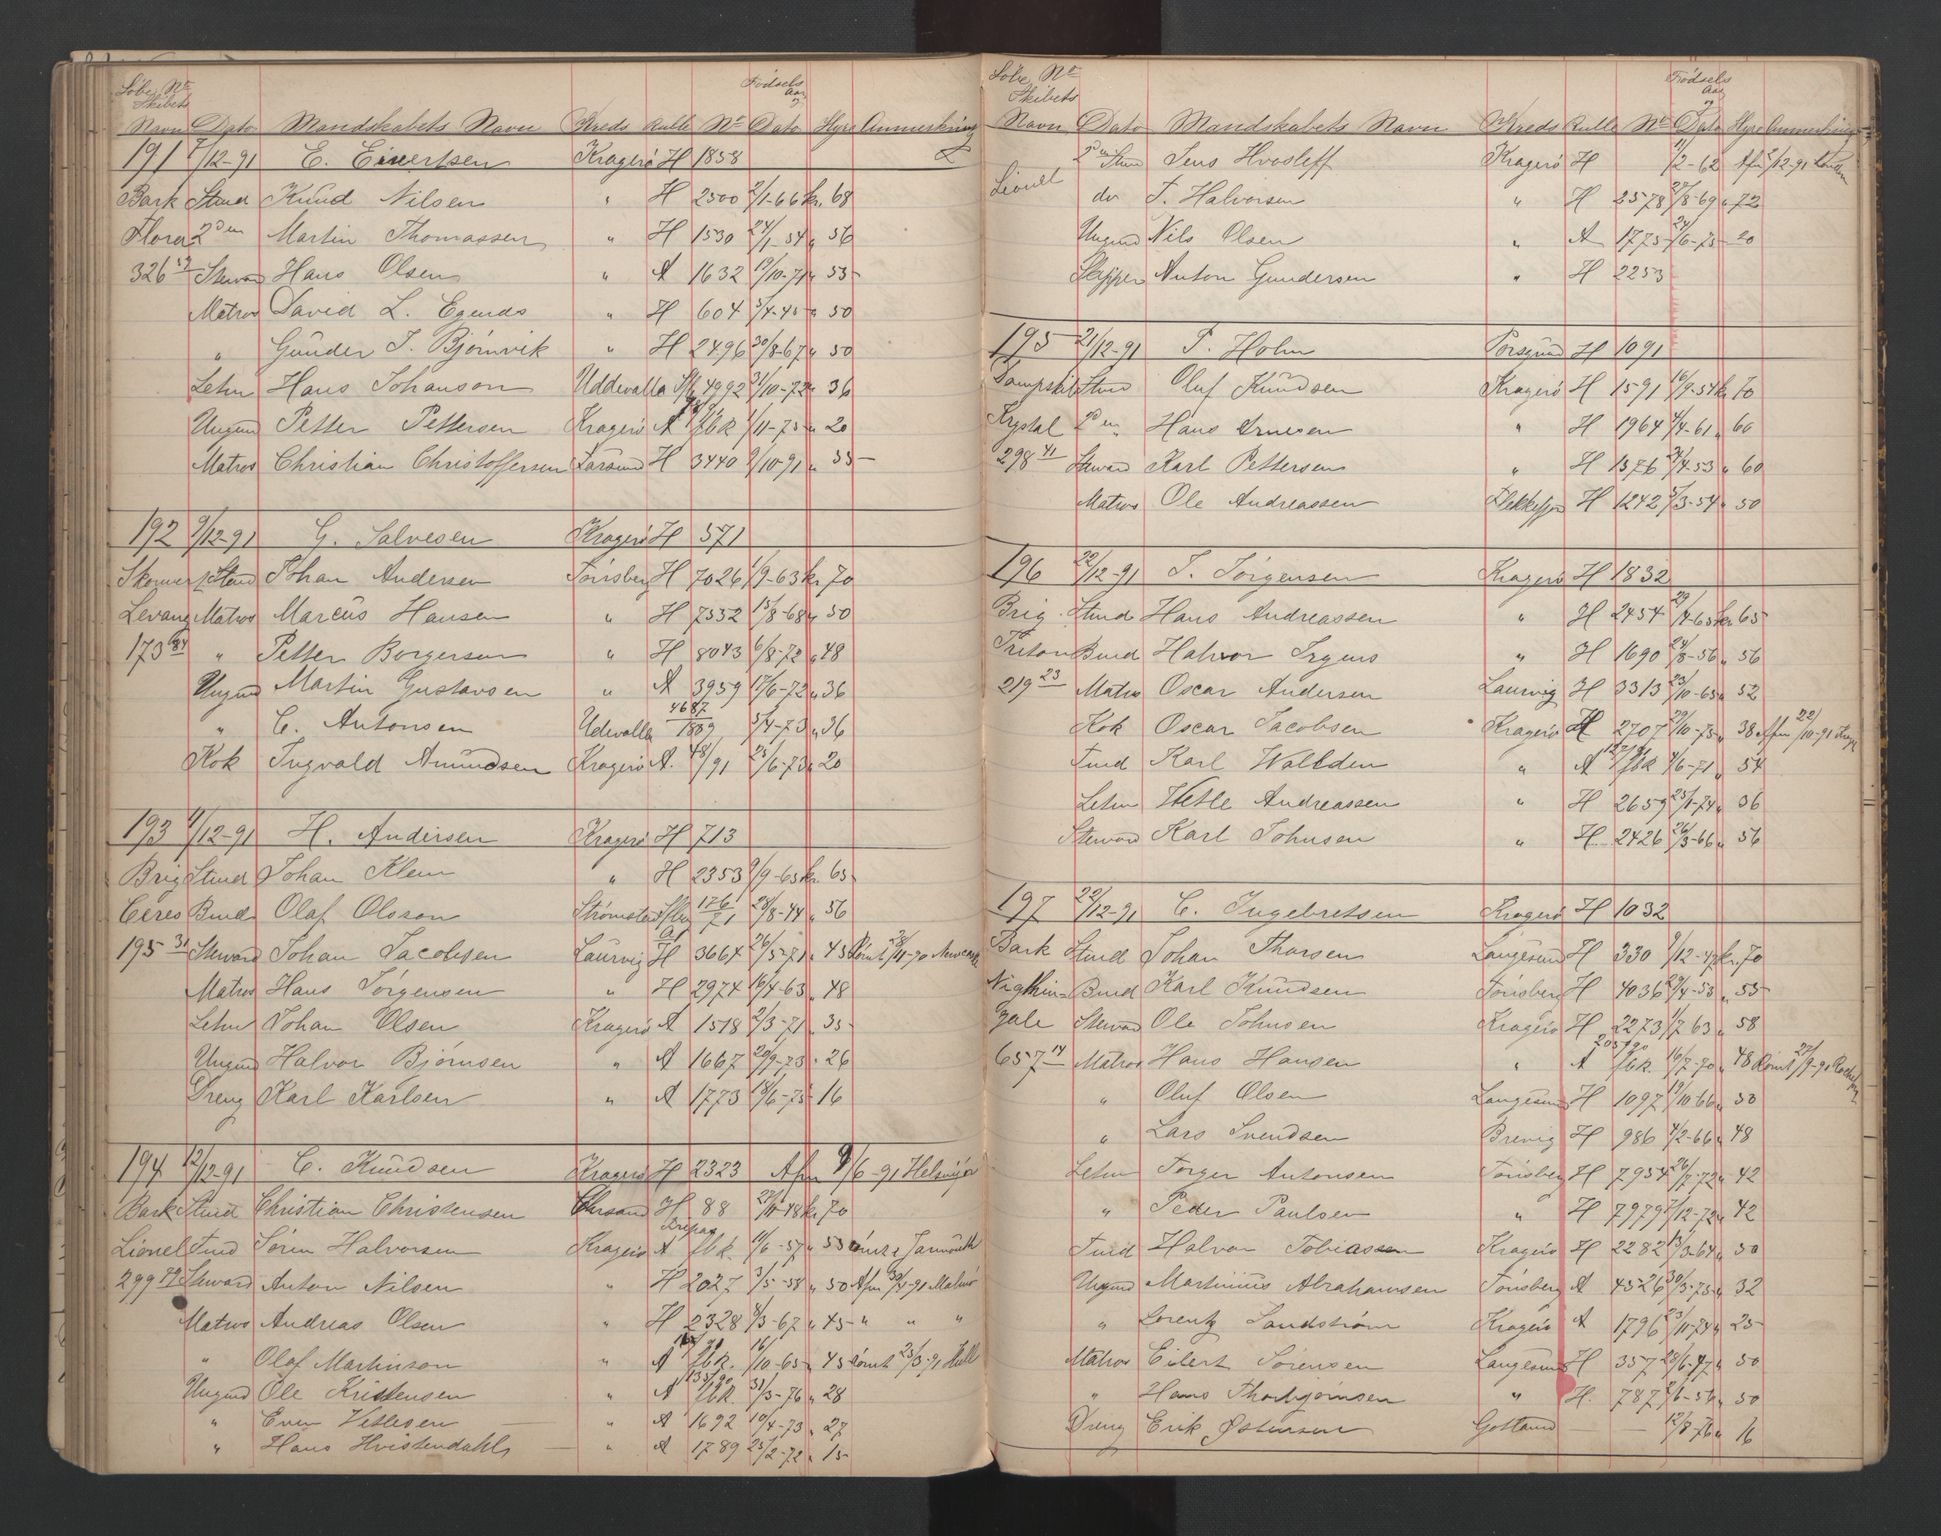 Løbe No Fødsels
Skibets Aar og
Navn Dato Mandskabets Navn Kreds Rulle No Dato Hyre Anmerkning
191 7/12-91 E. Eivertsen Kragerø H 1858
Bark Stmd Knud Nilsen " H 2500 2/1-66 kr. 68
Flora 2den Martin Thomassen " H 1530 24/1-54 " 56
326 59 Steward Hans Olsen " A 1632 19/10-71 " 55
Matros David L. Egends " H 604 5/4-45 " 50
" Gunder J. Bjørnvik " H 2496 30/8-67 " 50
Letm Hans Johanson Uddevalla 4992 31/10-72 " 36
Ungmd Petter Pettersen Kragerø A fbk 1/11-75 " 20
Matros Christian Christoffersen Farsund H 3440 9/10-91 " 55
192 9/12-91 G. Salvesen Kragerø H 571
Stmd Johan Andersen Tønsberg H 7026 1/9-63 kr. 70
Levang Matros Marcus Hansen " H 7552 15/8-68 " 50
173 84 " Petter Borgersen " H 8043 6/8-72 " 48
Ungmd Martin Gustavsen " A 3959 17/6-72 " 36
" C. Antonsen Udevalla 4687/1889 5/4-73 " 36
Kok Ingvald Amundsen Kragerø A. 48/91 25/6-73 " 20
193 11/12-91 H. Andersen Kragerø H 713
Brig Stmd Johan Klem " H 2353 9/9-65 kr. 65
Ceres Bmd Olaf Olsson Strømstad 176/71 28/8-44 " 56
195 31 Steward Johan Jacobsen Laurvig H 3664 26/5-71 " 45 Rømt 28/11-90 Newcastle
Matros Hans Jørgensen " H 2974 16/4-63 " 48
Letm Johan Olsen Kragerø A 1518 2/3-71 " 35
Ungmd Halvor Bjørnsen " A 1667 20/9-73 " 26
Dreng Karl Karlsen " A 1773 18/6-75 16
194 12/12-91 C. Knudsen Kragerø H 2323 Afm 9/6-91 Helsingør
Bark Stmd Christian Christensen Chrsand H 88 27/11-48 kr. 70
Lionel Tmd Søren Halvorsen Kragerø A fbk. 11/6-57 " 55 Rømt i Jarmouth
299 79 Steward Anton Nilsen " H 2027 3/5-58 " 50 Afm 30/4-91 Malmø
Matros Andreas Olsen " H 2328 8/3-67 " 45 " " "
" Olaf Martinson " A fbk. 16/10-65 " 45 Rømt 25/3-91 Hull
Ungmd Ole Kristensen " A 135/90 fbk. 31/3-76 " 28
" Even Vetlesen " A 1692 10/4-73 " 27
" Hans Hvistendahl " A 1789 25/2-72 " 15
Løbe No Fødsels
Skibets Aar og
Navn Dato Mandskabets Navn Kreds Rulle No Dato Hyre Anmerkning
2den Stm Jens Hvosleff Kragerø H 11/2-62 Afm 2/12-91 London
Lionel do F. Halvorsen " H 2578 27/8-69 " 72
Ungmd Nils Olsen " A 1775 24/6-75 20
Skipper Anton Gundersen " H 2253
195 21/12-91 F. Holm Porsgrund H 1091
Dampskib Stmd Oluf Knudsen Kragerø H 1591 16/9-54 kr. 70
Krystal 2den " Hans Arnesen " H 1964 4/4-61 " 60
298 41 Steward Karl Pettersen " H 1576 24/4-53 " 60
Matros Ole Andreassen Flekkefjor H 1242 5/3-54 " 50
196 22/12-91 J. Jørgensen Kragerø H 1832
Brig Stmd Hans Andreassen " H 2454 29/4-65 kr. 65
Triton Bmd Halvor Irgens " H 1690 24/8-56 " 56
219 23 Matros Oscar Andersen Laurvig H 3313 23/10-65 " 52
Kok Oscar Jacobsen Kragerø H 2707 29/10-75 " 38 Afm 22/10-91
Tmd Karl Wallden " A fbk 4/6-71 " 54
Letm Vetle Andreassen " H 2659 25/1-74 " 36
Steward Karl Johnsen " H. 2426 26/3-66 " 56
197 22/12-91 C. Ingebretsen Kragerø H 1032
Bark Stmd Johan Thorsen Langesund H 330 9/12-47 kr. 70
Nigthin- Bmd Karl Knudsen Tønsberg H 4036 29/4-53 " 55
gale Steward Ole Johnsen Kragerø H 2273 1/7 63 " 58
657 14 Matros Hans Hansen " A 205/90 fbk. 16/7-70 " 48 Rømt 27/9-91
" Oluf Olsen Langesund H 1097 19/10-66 " 50
" Lars Svendsen Brevig H 986 4/2-66 " 48
Letm Torger Antonsen Tønsberg H 7954 26/7-72 " 42
" Peder Paulsen " H 7979 7/12-72 " 42
Tmd Halvor Tobiassen Kragerø H 2282 13/3-64 " 50
Ungmd Martinius Abrahamsen Tønsberg A 4526 30/3-75 " 32
" Lorentz Sandstrøm Kragerø A 1796 23/11-74 " 25
Matros Eilert Sørensen Langesund H 357 28/6-47 " 50
" Hans Thorbjørnsen " H. 787 2/6-56 " 50
Dreng Erik Østensen Gotland 12/8-76 " 16